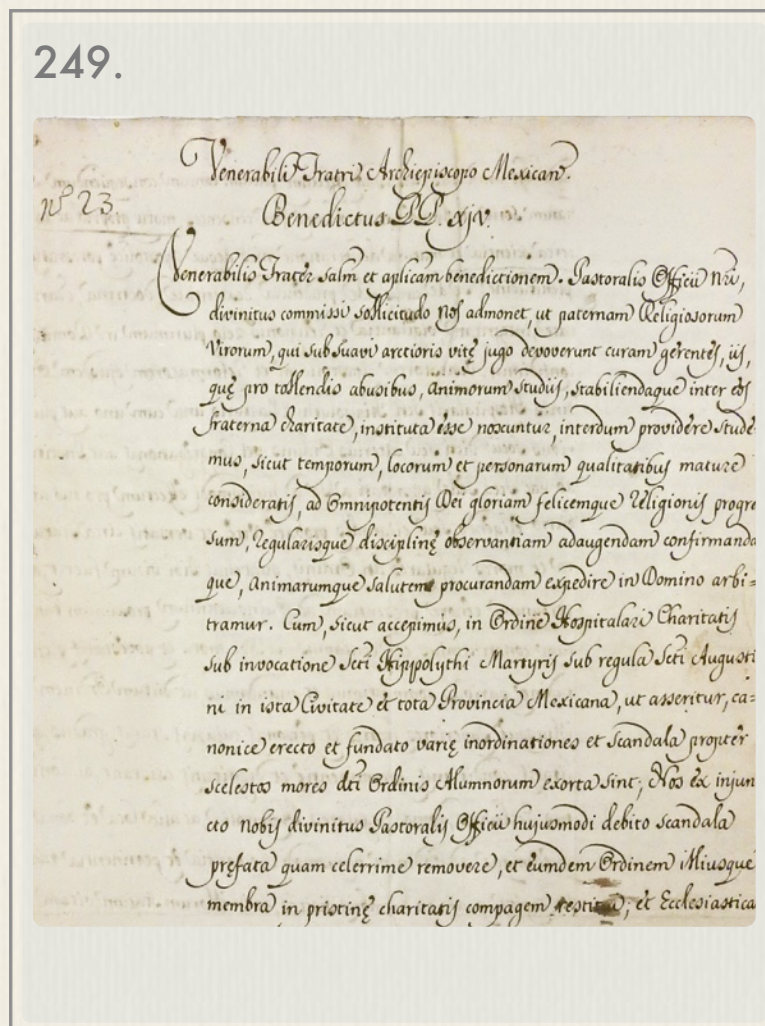 249.
Venerabili Fratri Archiepiscopo Mexican.
nº 23
Benedictus PP. xjv.
Venerabilis Frater salm et aplicam benedictionem. Pastoralis Officii nri,
divinitus commissi sollicitudo nos admonet, ut paternam Religiosorum
Virorum, qui sub suavi arctioris vitę jugo devoverunt curam gerentes, iis,
quę pro tollendis abusibus, animorum studiis, stabiliendaque inter eos
fraterna charitate, instituta esse noscuntur, interdum providere stude
mus, sicut temporum, locorum et personarum qualitatibus mature
consideratis, ad Omnipotentis Dei gloriam felicemque Religionis progre
sum, Regularisque disciplinę observantiam adaugendam confirmanda
que, Animarumque salutem procurandam expedire in Domino arbi=
tramur. Cum, sicut accepimus, in Ordine Hospitalari Charitatis
sub invocatione Scti Hippolythi Martyris sub regula Scti Augusti
ni in ista Civitate et tota Provincia Mexicana, ut asseritur, ca=
nonice erecto et fundato varię inordinationes et scandala propter
scelestos mores dti Ordinis Alumnorum exorta sint; Nos ex injun
cto nobis divinitus Pastoralis Officii hujusmodi debito scandala
pręfata quam celerrime removere, et eumdem Ordinem illiusque
membra in pristinę charitatis compagem; et Ecclesiastica